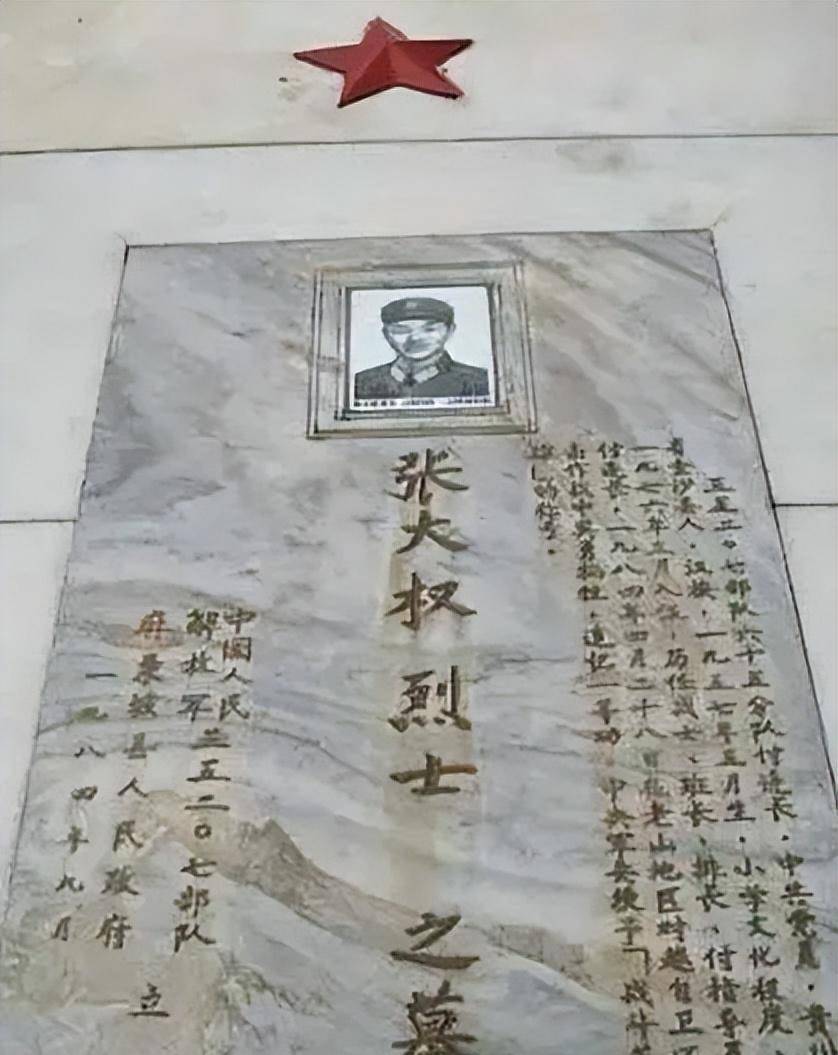 三五二〇七部队六十五分队付连长，中共党员，贵州
省金沙县人，汉族，一九五七年五月生，小学文化程度，
一九七六年三月入伍，历任战士、班长、排长、付指导员
付连长，一九八四年四月二十八日在老山地区对越自卫
击作战中英勇牺牲，追记一等功，中央军委授予「战斗
雄」称号。
张大权烈士之墓
中国人民
解放军三五二〇七部队
麻栗坡县人民政府 立
一九八四年九月